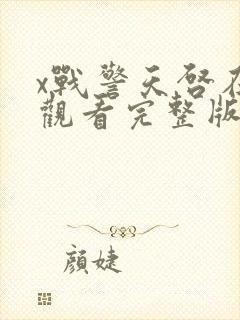 x戰警天啓在
觀看完整版
顏婕